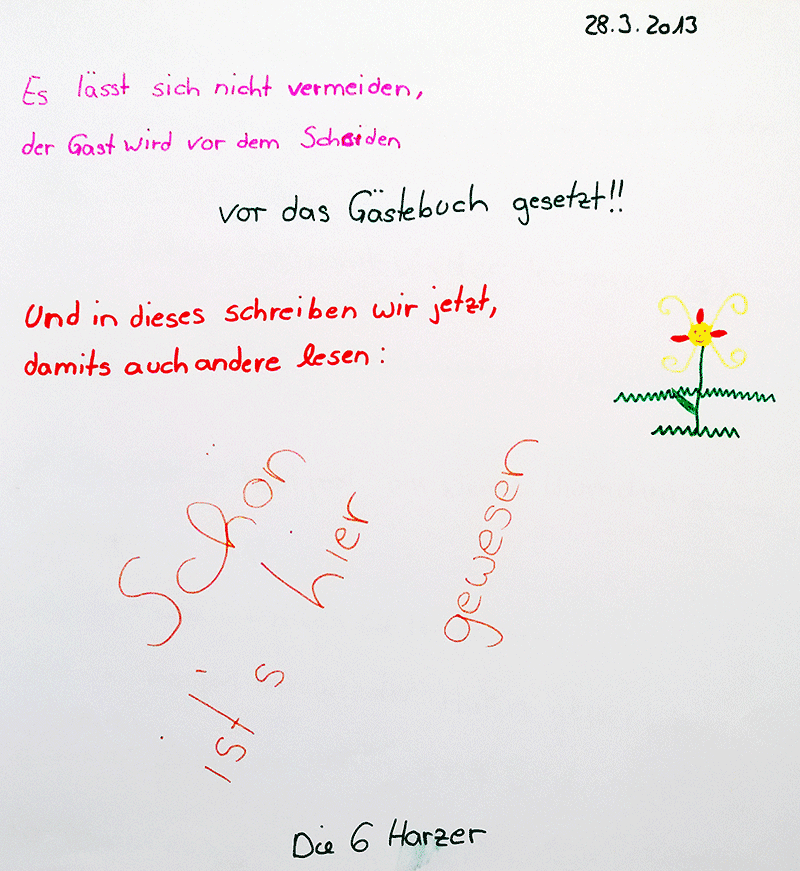 28.3.2013
Es lässt sich nicht vermeiden,
der Gast wird vor dem Scheiden
vor das Gästebuch gesetzt!!
Und in dieses schreiben wir jetzt,
damits auch andere lesen:
Schön
ist's hier
gewesen
Die 6 Harzer